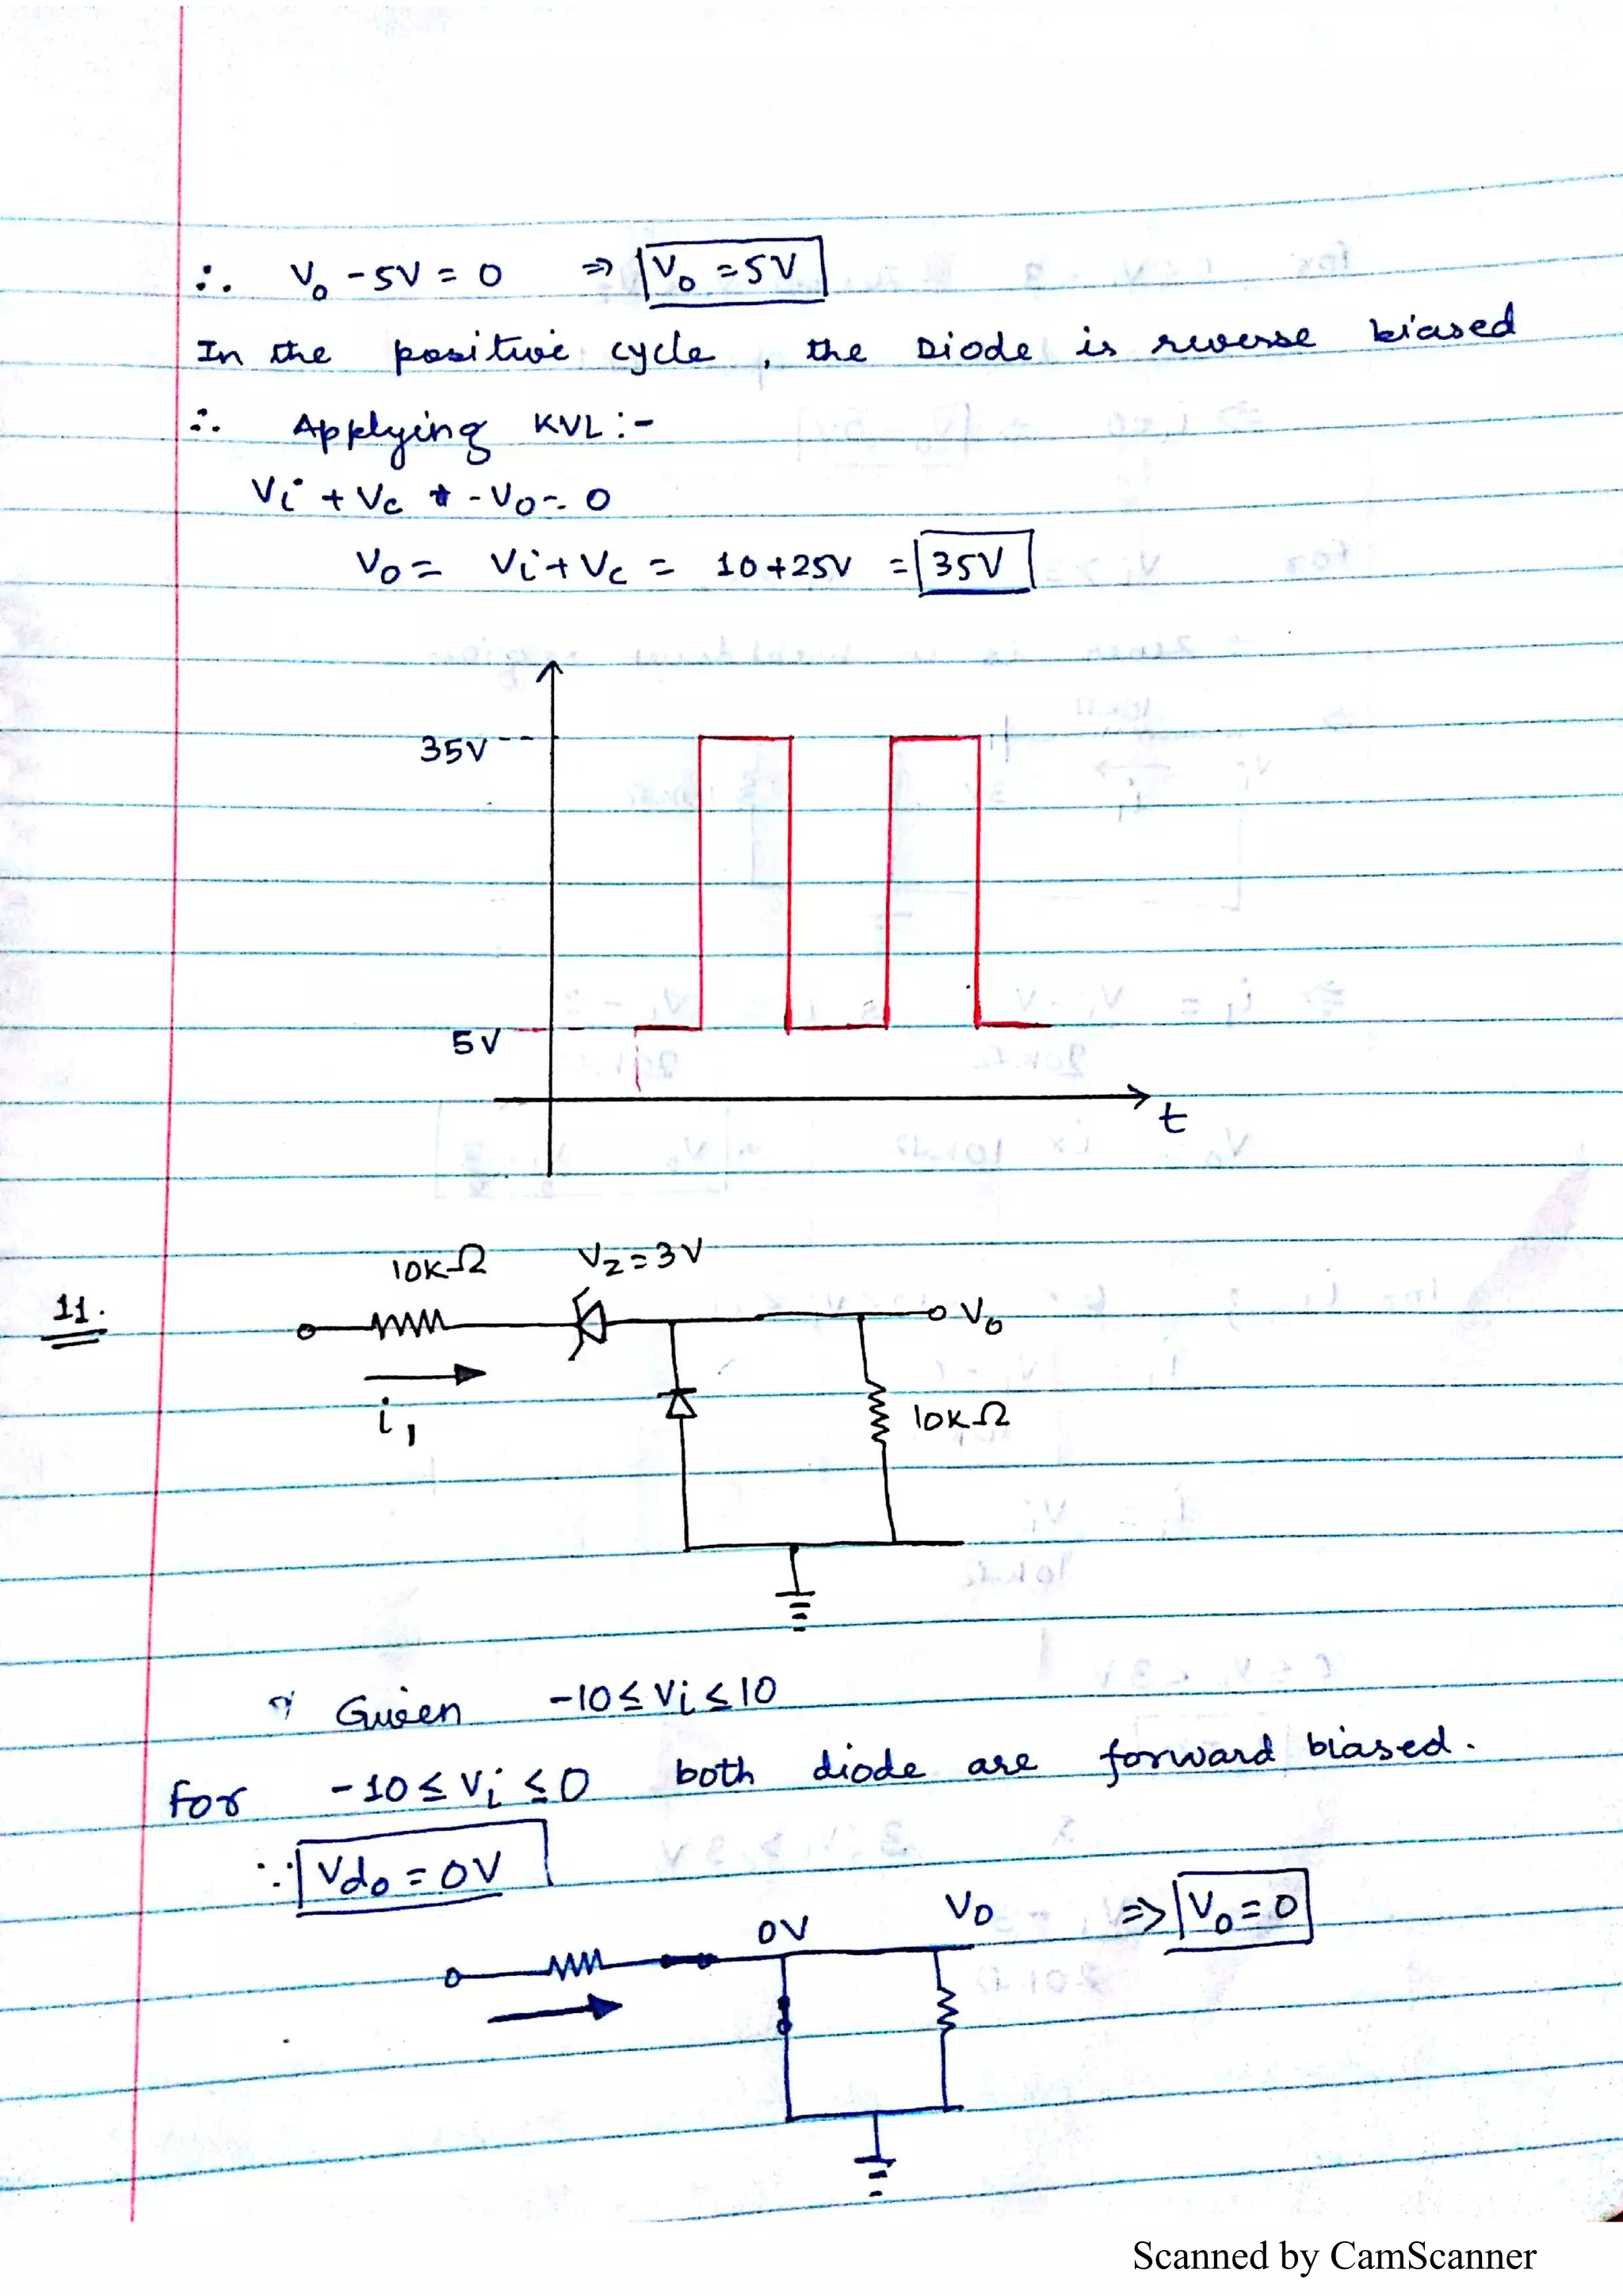 ∴ V₀ - 5V = 0 ⇒ V₀ = 5V
In the positive cycle, the Diode is reverse biased
∴ Applying KVL :-
Vi + Vc - V₀ = 0
V₀ = Vi + Vc = 10 + 25V = 35V
35V
5V
t
10KΩ Vz = 3V
11.
V₀
i₁
10KΩ
Given -10 ≤ Vi ≤ 10
For -10 ≤ Vi ≤ 0 both diode are forward biased.
∵ Vd₀ = 0V
0V V₀ ⇒ V₀ = 0
Scanned by CamScanner